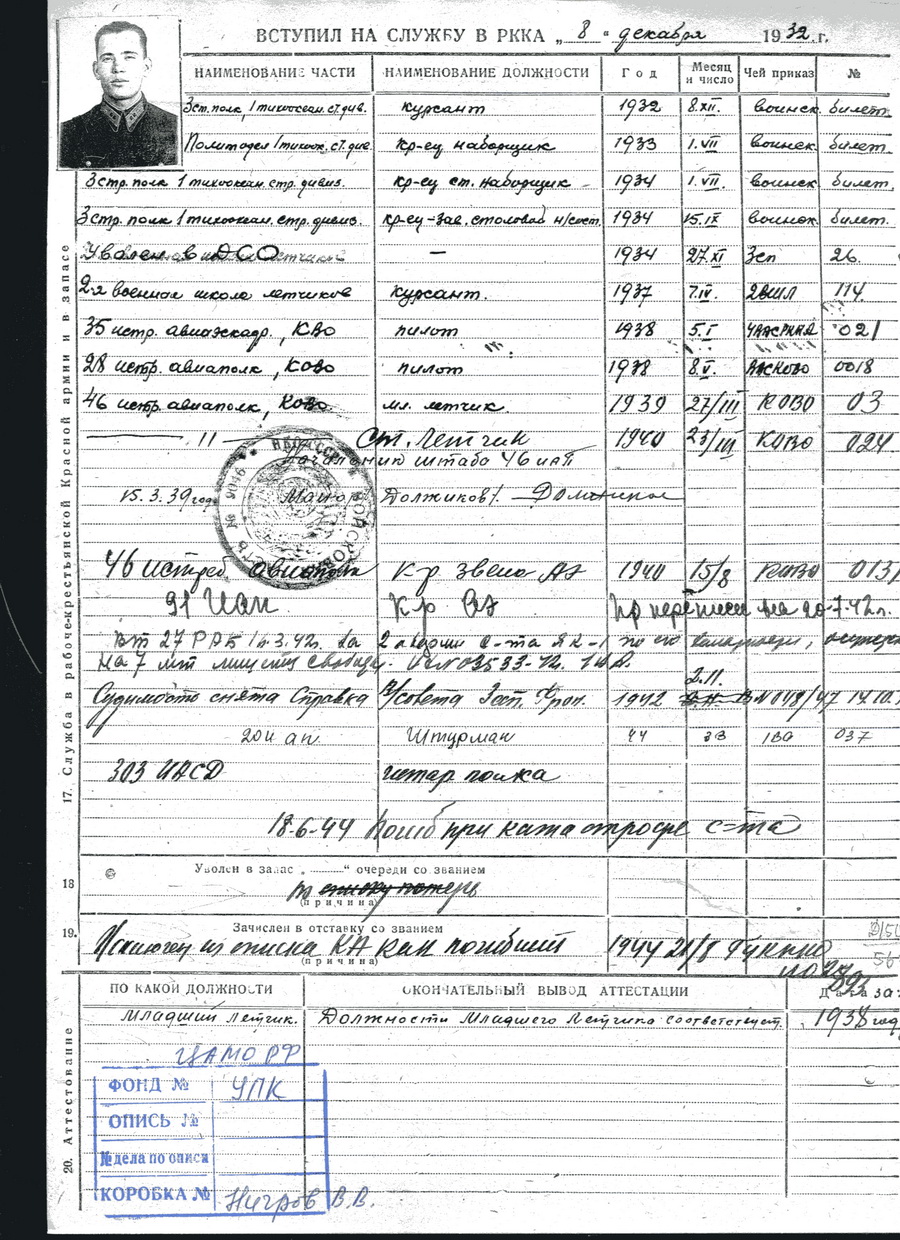 ВСТУПИЛ НА СЛУЖБУ В РККА „ 8 " декабря 1932 г.
НАИМЕНОВАНИЕ ЧАСТИ НАИМЕНОВАНИЕ ДОЛЖНОСТИ Год Месяц и число Чей приказ №
3 ст. полк, 1 тихоокеан. ст. див. курсант 1932 8.XII. воинск. билет.
Политотдел 1 тихоок. ст. див. кр-ец наборщик 1933 1.VII воинск. билет.
3 стр. полк 1 тихоокеан. стр. дивиз. кр-ец ст. наборщик 1934 1.VII. воинск. билет.
3 стр. полк 1 тихоокеан. стр. дивиз. кр-ец-зав. столовой н/сост. 1934 15.IX воинск. билет.
Уволен в ДСО — 1934 27.XI 3сп 26.
2-я военная школа летчиков курсант. 1937 7.IV. 2ВШЛ 114
35 истр. авиаэскадр., КВО пилот 1938 5.I 021
28 истр. авиаполк, КОВО пилот 1938 8.V. 0018
46 истр. авиаполк, КОВО мл. летчик. 1939 27/III КОВО 03
— 11 — Ст. Летчик 1940 23/III КОВО 024
Начальник штаба 46 иап
15.3.39 года Майор Должиков/.
46 истреб. авиаполк К-р звена АЭ 1940 15/8 КОВО 013
91 Иап К-р АЭ
27 РАБ 2 с-та ЯК-1 по его
На 7 лет лишения свободы.
2.11.
Судимость снята Справка В/совета Зап. Фрон. 1942 № 048/47 14.10.
20 и ап. Штурман 44 3В 1ВА 037
303 ИАСД штар полка
18-6-44 Погиб при катастрофе с-та
17. Служба в рабоче-крестьянской Красной армии и в запасе
18 Уволен в запас „ " очереди со званием
по списку потерь
(причина)
19. Зачислен в отставку со званием
Исключен из списка КА как погибший 1944 21/8
(причина)
ПО КАКОЙ ДОЛЖНОСТИ ОКОНЧАТЕЛЬНЫЙ ВЫВОД АТТЕСТАЦИИ
Младший Летчик. Должности Младшего Летчика соответствует. 1938 год
20. Аттестование
ЦАМО РФ
ФОНД № УПК
ОПИСЬ №
№ дела по описи
КОРОБКА № Нигров В.В.